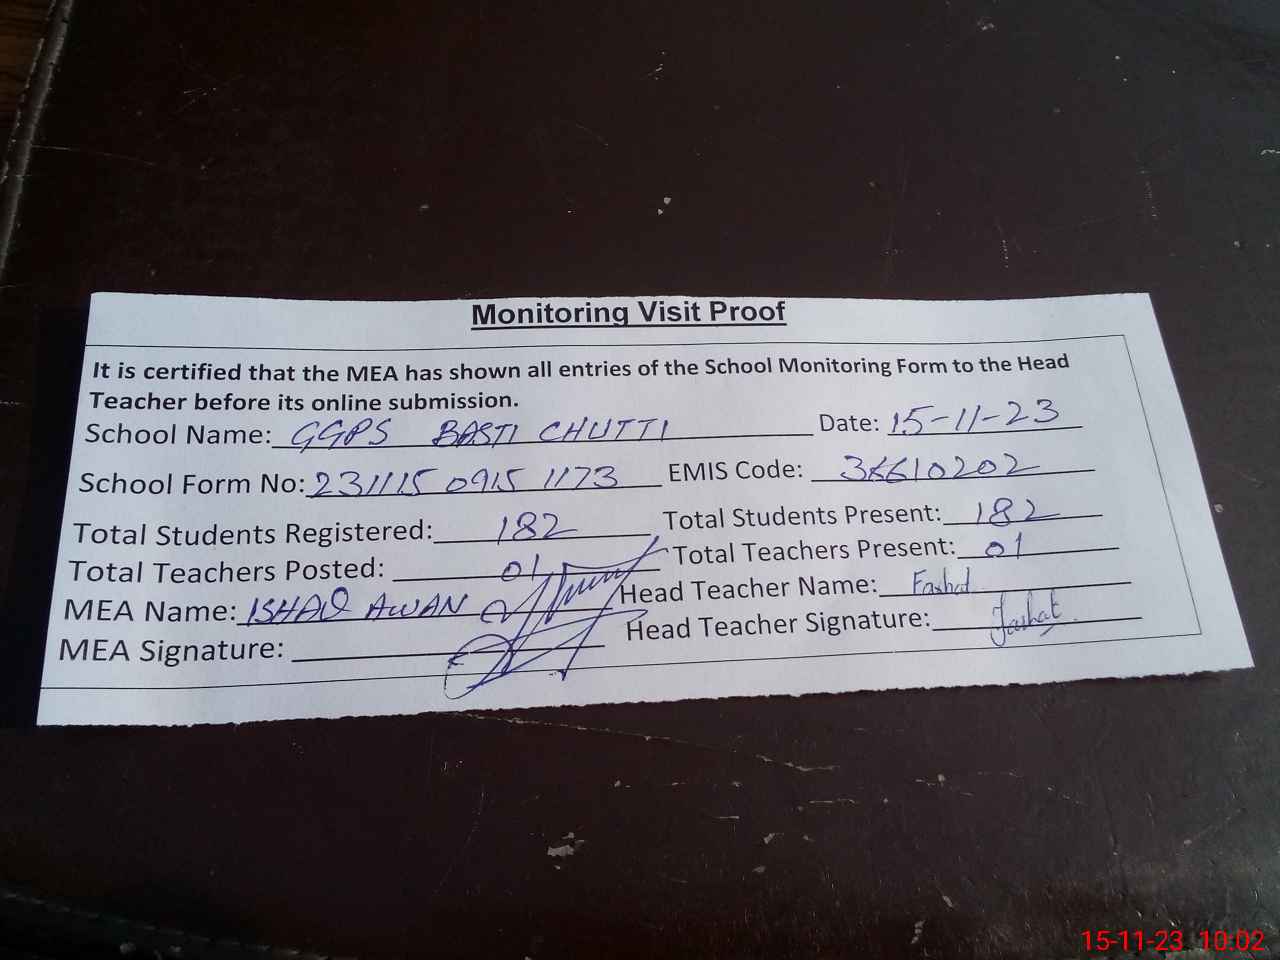 Monitoring Visit Proof
It is certified that the MEA has shown all entries of the School Monitoring Form to the Head
Teacher before its online submission.
School Name: GGPS BASTI CHUTTI Date: 15-11-23
School Form No: 231115 0915 1173 EMIS Code: 36610202
Total Students Registered: 182 Total Students Present: 182
Total Teachers Posted: 01 Total Teachers Present: 01
MEA Name: ISHAQ AWAN Head Teacher Name: Fashat
MEA Signature: Head Teacher Signature: Fashat
15-11-23 10:02